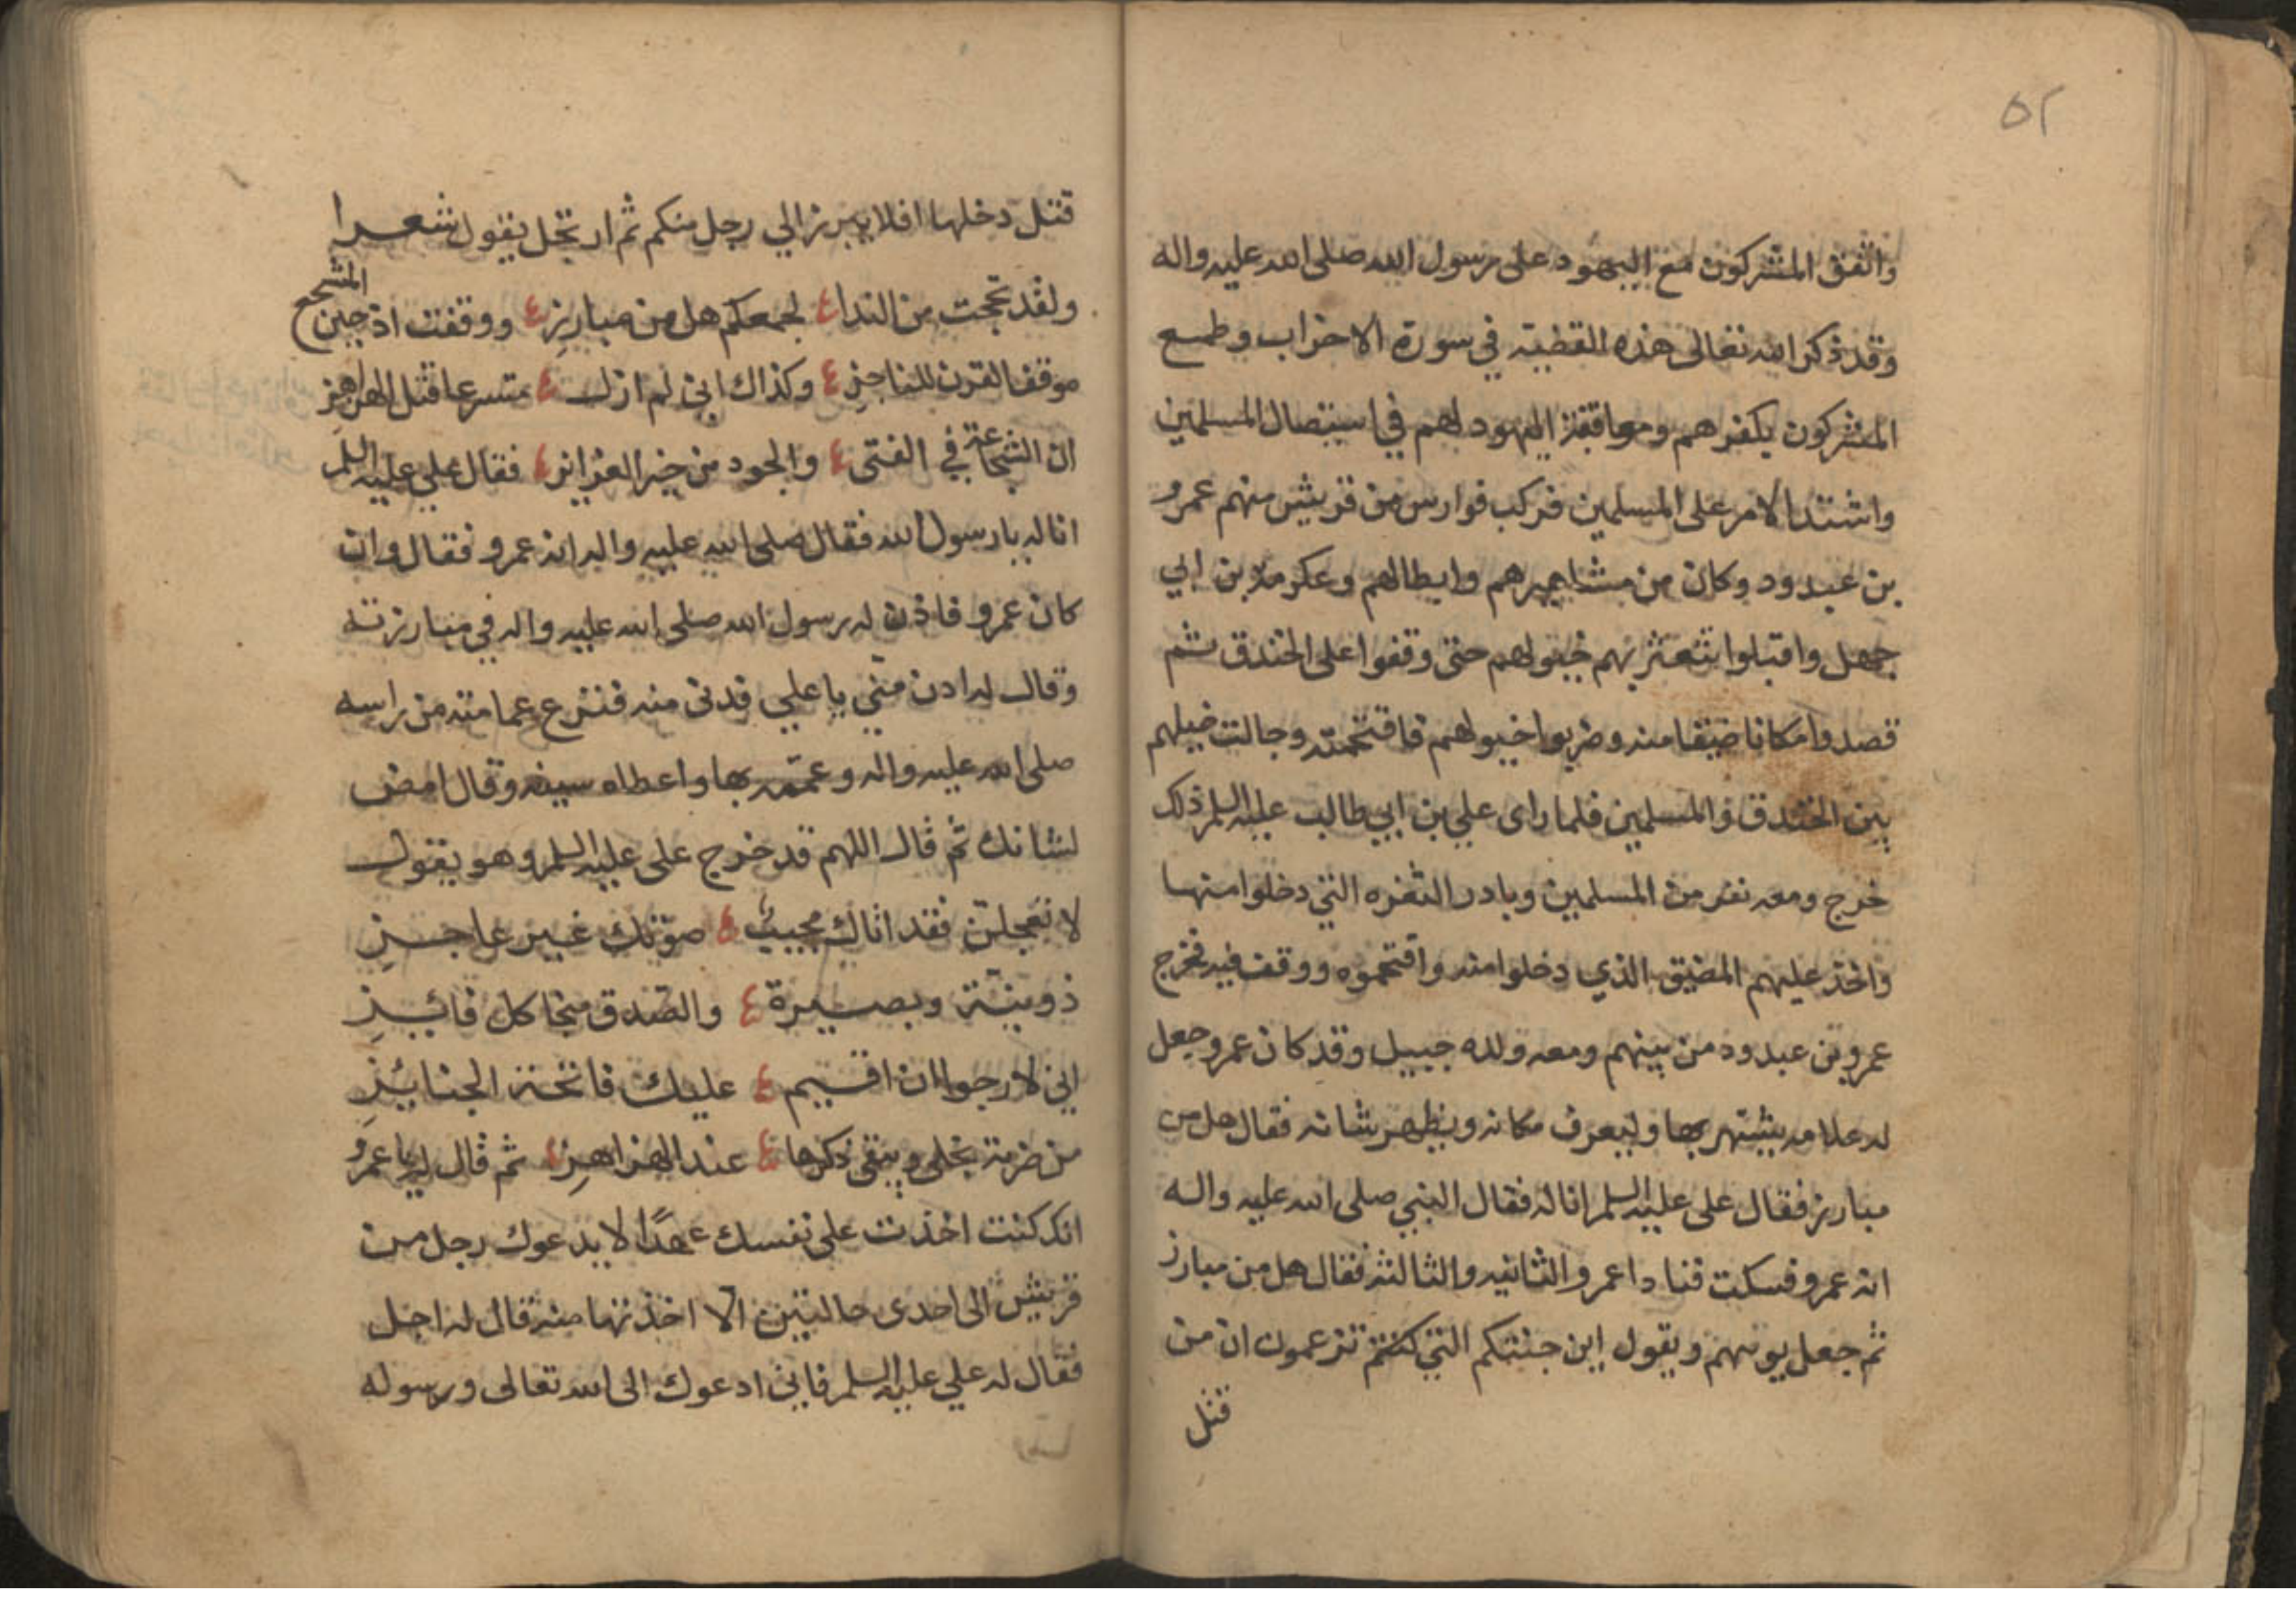 ٥٢
واتفق المشركون مع اليهود على رسول الله صلى الله عليه واله
وقد ذكر الله تعالى هذه القضية في سورة الاحزاب وطمع
المشركون بكفرهم وموافقة اليهود لهم في استيصال المسلمين
واشتد الامر على المسلمين فركب فوارس من قريش منهم عمرو
بن عبدود وكان من مشاهيرهم وابطالهم وعكرمة بن ابي
جهل واقبلوا تتعثر بهم خيولهم حتى وقفوا على الخندق ثم
قصدوا مكانا ضيقا منه وضربوا خيولهم فاقتحمته وجالت خيلهم
بين الخندق والمسلمين فلما راى علي بن ابي طالب عليه السلم ذلك
خرج ومعه نفر من المسلمين وبادر الثغره التي دخلوا منها
واخذ عليهم المضيق الذي دخلوا منه واقتحموه ووقف فيه فخرج
عمرو بن عبدود من بينهم ومعه ولده حبيل وقد كان عمرو جعل
له علامه يشتهر بها وليعرف مكانه ويظهر شانه فقال هل من
مبارز فقال علي عليه السلم انا له فقال النبي صلى الله عليه واله
انه عمرو فسكت فنادا عمرو الثانيه والثالثه فقال هل من مبارز
ثم جعل يوبهم ويقول اين جنتكم التي كنتم تزعمون ان من
قتل
قتل دخلها افلا يبرز الي رجل منكم ثم ارتجل يقول شعرا
ولقد بححت من الندا ع لجمعكم هل من مبارزِ ع ووقفت اذ جبن المشجع
موقف القرن المناجزِ ع وكذاك اني لم ازل ع متسرعا قبل الهزاهزِ
ان الشجاعة في الفتى ع والجود من خير الغرائز ع فقال علي عليه السلم
انا له يا رسول الله فقال صلى الله عليه واله انه عمرو فقال وان
كان عمرو فاذن له رسول الله صلى الله عليه واله في مبارزته
وقال له ادن منّي يا علي فدنى منه فنزع عمامته من راسه
صلى الله عليه واله وعمّمه بها واعطاه سيفه وقال امض
لشانك ثم قال اللهم قد خرج علي عليه السلم وهو يقول
لا تعجلنّ فقد اتاك مجيب ع صوتك غير عاجزِ
ذو نيّة وبصيرة ع والصدق منجا كل فائزِ
اني لارجوا ان اقيم ع عليك نائحة الجنائزِ
من ضربة نجلى ويبقى ذكرها ع عند الهزاهزِ ع ثم قال له يا عمرو
انك كنت اخذت على نفسك عهدًا لا يدعوك رجل من
قريش الى احدى حالتين الّا اخذتها منه قال له اجل
فقال له علي عليه السلم فاني ادعوك الى الله تعالى ورسوله